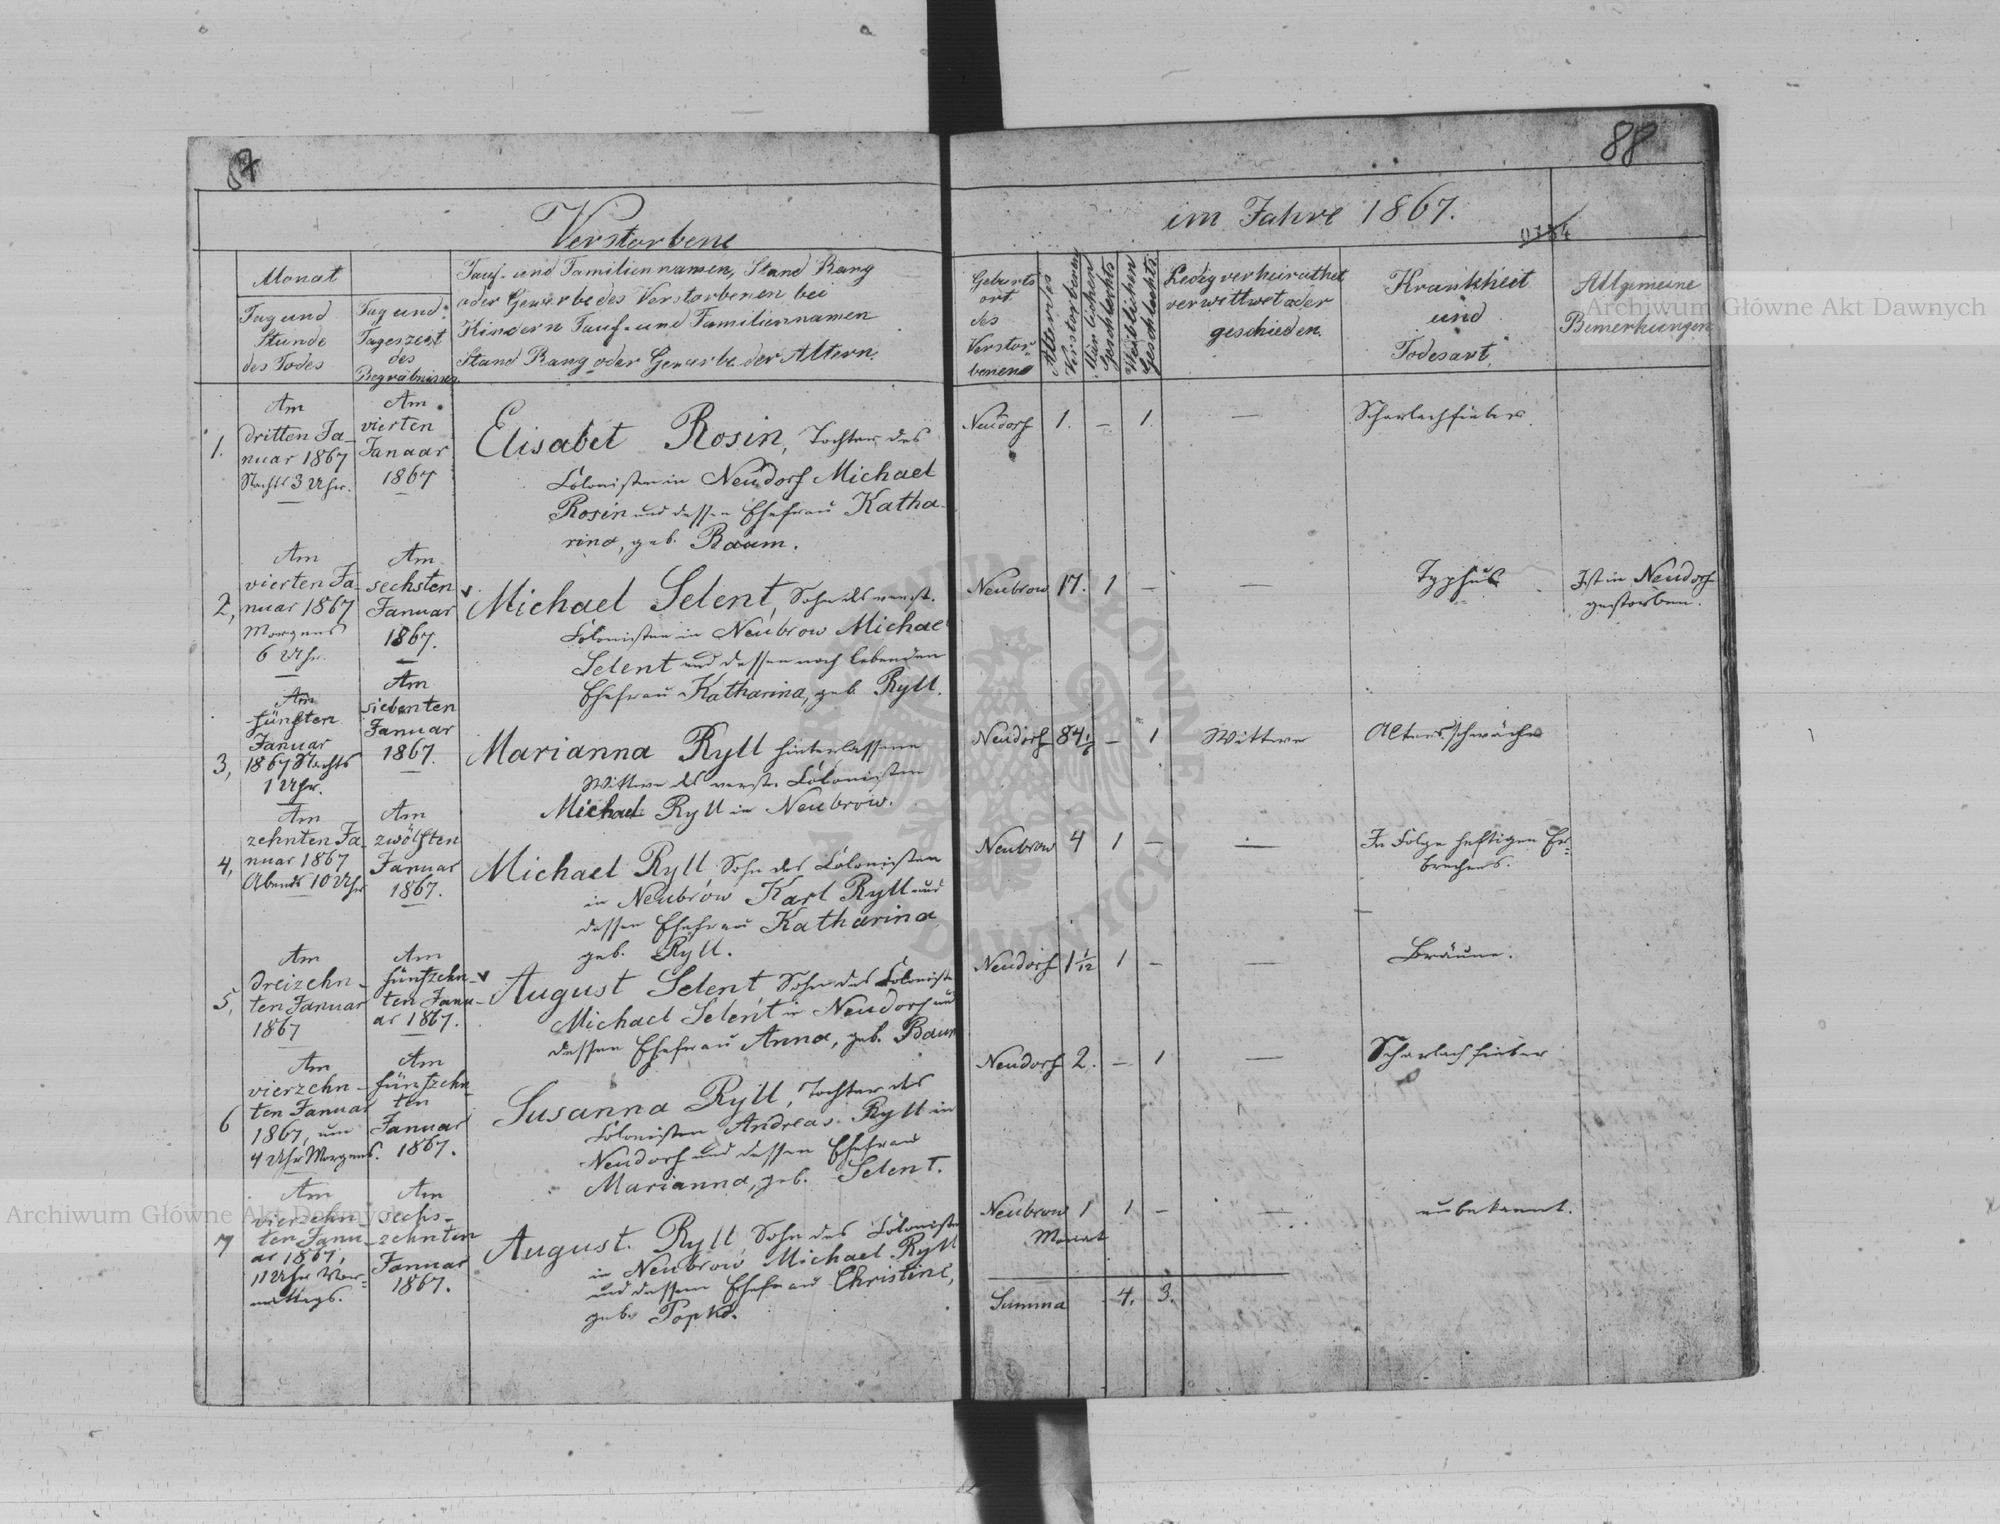 87
Verstorbene
Monat
Tag und
Stunde
des Todes
Tag und
Tageszeit
des
Begräbnisses
Tauf- und Familiennamen, Stand Rang
oder Gewerbe des Verstorbenen bei
Kindern Tauf- und Familiennamen
Stand Rang oder Gewerbe der Altern.
1.
Am
dritten Ja-
nuar 1867
Nachts 3 Uhr.
Am
vierten
Januar
1867
Elisabet Rosin, Tochter des
Colonisten in Neudorf Michael
Rosin und dessen Ehefrau Katha-
rina, geb. Baum.
2,
Am
vierten Ja-
nuar 1867
Morgens
6 Uhr.
Am
sechsten
Januar
1867.
Michael Selent, Sohn des verst.
Colonisten in Neubrow Michael
Selent und dessen noch lebenden
Ehefrau Katharina, geb. Ryll.
3,
Am
fünften
Januar
1867 Nachts
1 Uhr.
Am
siebenten
Januar
1867.
Marianna Ryll hinterlassene
Wittwe des verst. Colonisten
Michael Ryll in Neubrow.
4,
Am
zehnten Ja
nuar 1867
Abends 10 Uhr
Am
zwölften
Januar
1867.
Michael Ryll Sohn des Colonisten
in Neubrow Karl Ryll und
dessen Ehefrau Katharina
geb. Ryll.
5,
Am
dreizehn-
ten Januar
1867
Am
fünfzehn-
ten Janu-
ar 1867.
August Selent Sohn des Coloniste
Michael Selent in Neudorf und
dessen Ehefrau Anna, geb. Baum
6
Am
vierzehn-
ten Januar
1867, um
4 Uhr Morgens.
Am
fünfzehn-
ten
Januar
1867.
Susanna Ryll, Tochter des
Colonisten Andreas Ryll in
Neudorf und dessen Ehefrau
Marianna, geb. Selent.
7
Am
vierzehn-
ten Janu-
ar 1867,
11 Uhr Vor-
mittags.
Am
sechs-
zehnten
Januar
1867.
August Ryll, Sohn des Coloniste
in Neubrow Michael Ryll
und dessen Ehefrau Christine,
geb. Popko.
88
im Jahre 1867.
Geburts
ort
des
Verstor-
benen
Alter des
Verstorbenen
Männlichen
Geschlechts
Weiblichen
Geschlechts
Ledig verheirathet
verwittwet oder
geschieden.
Krankheit
und
Todesart
Allgemeine
Bemerkungen
Neudorf 1. – 1. — Scharlachfieber.
Neubrow 17. 1 – — Typhus Ist in Neudorf
gestorben.
Neudorf 84 1/6 – 1 Wittwe Altersschwäche
Neubrow 4 1 – — In Folge heftigen Er-
brechens.
Neudorf 1 1/12 1 – — Bräune.
Neudorf 2. – 1 — Scharlachfieber
Neubrow 1 1 – — unbekannt.
Monat
Summa 4. 3.
Archiwum Główne Akt Dawnych
Archiwum Główne Akt Dawnych
ARCHIWUM GŁÓWNE AKT DAWNYCH